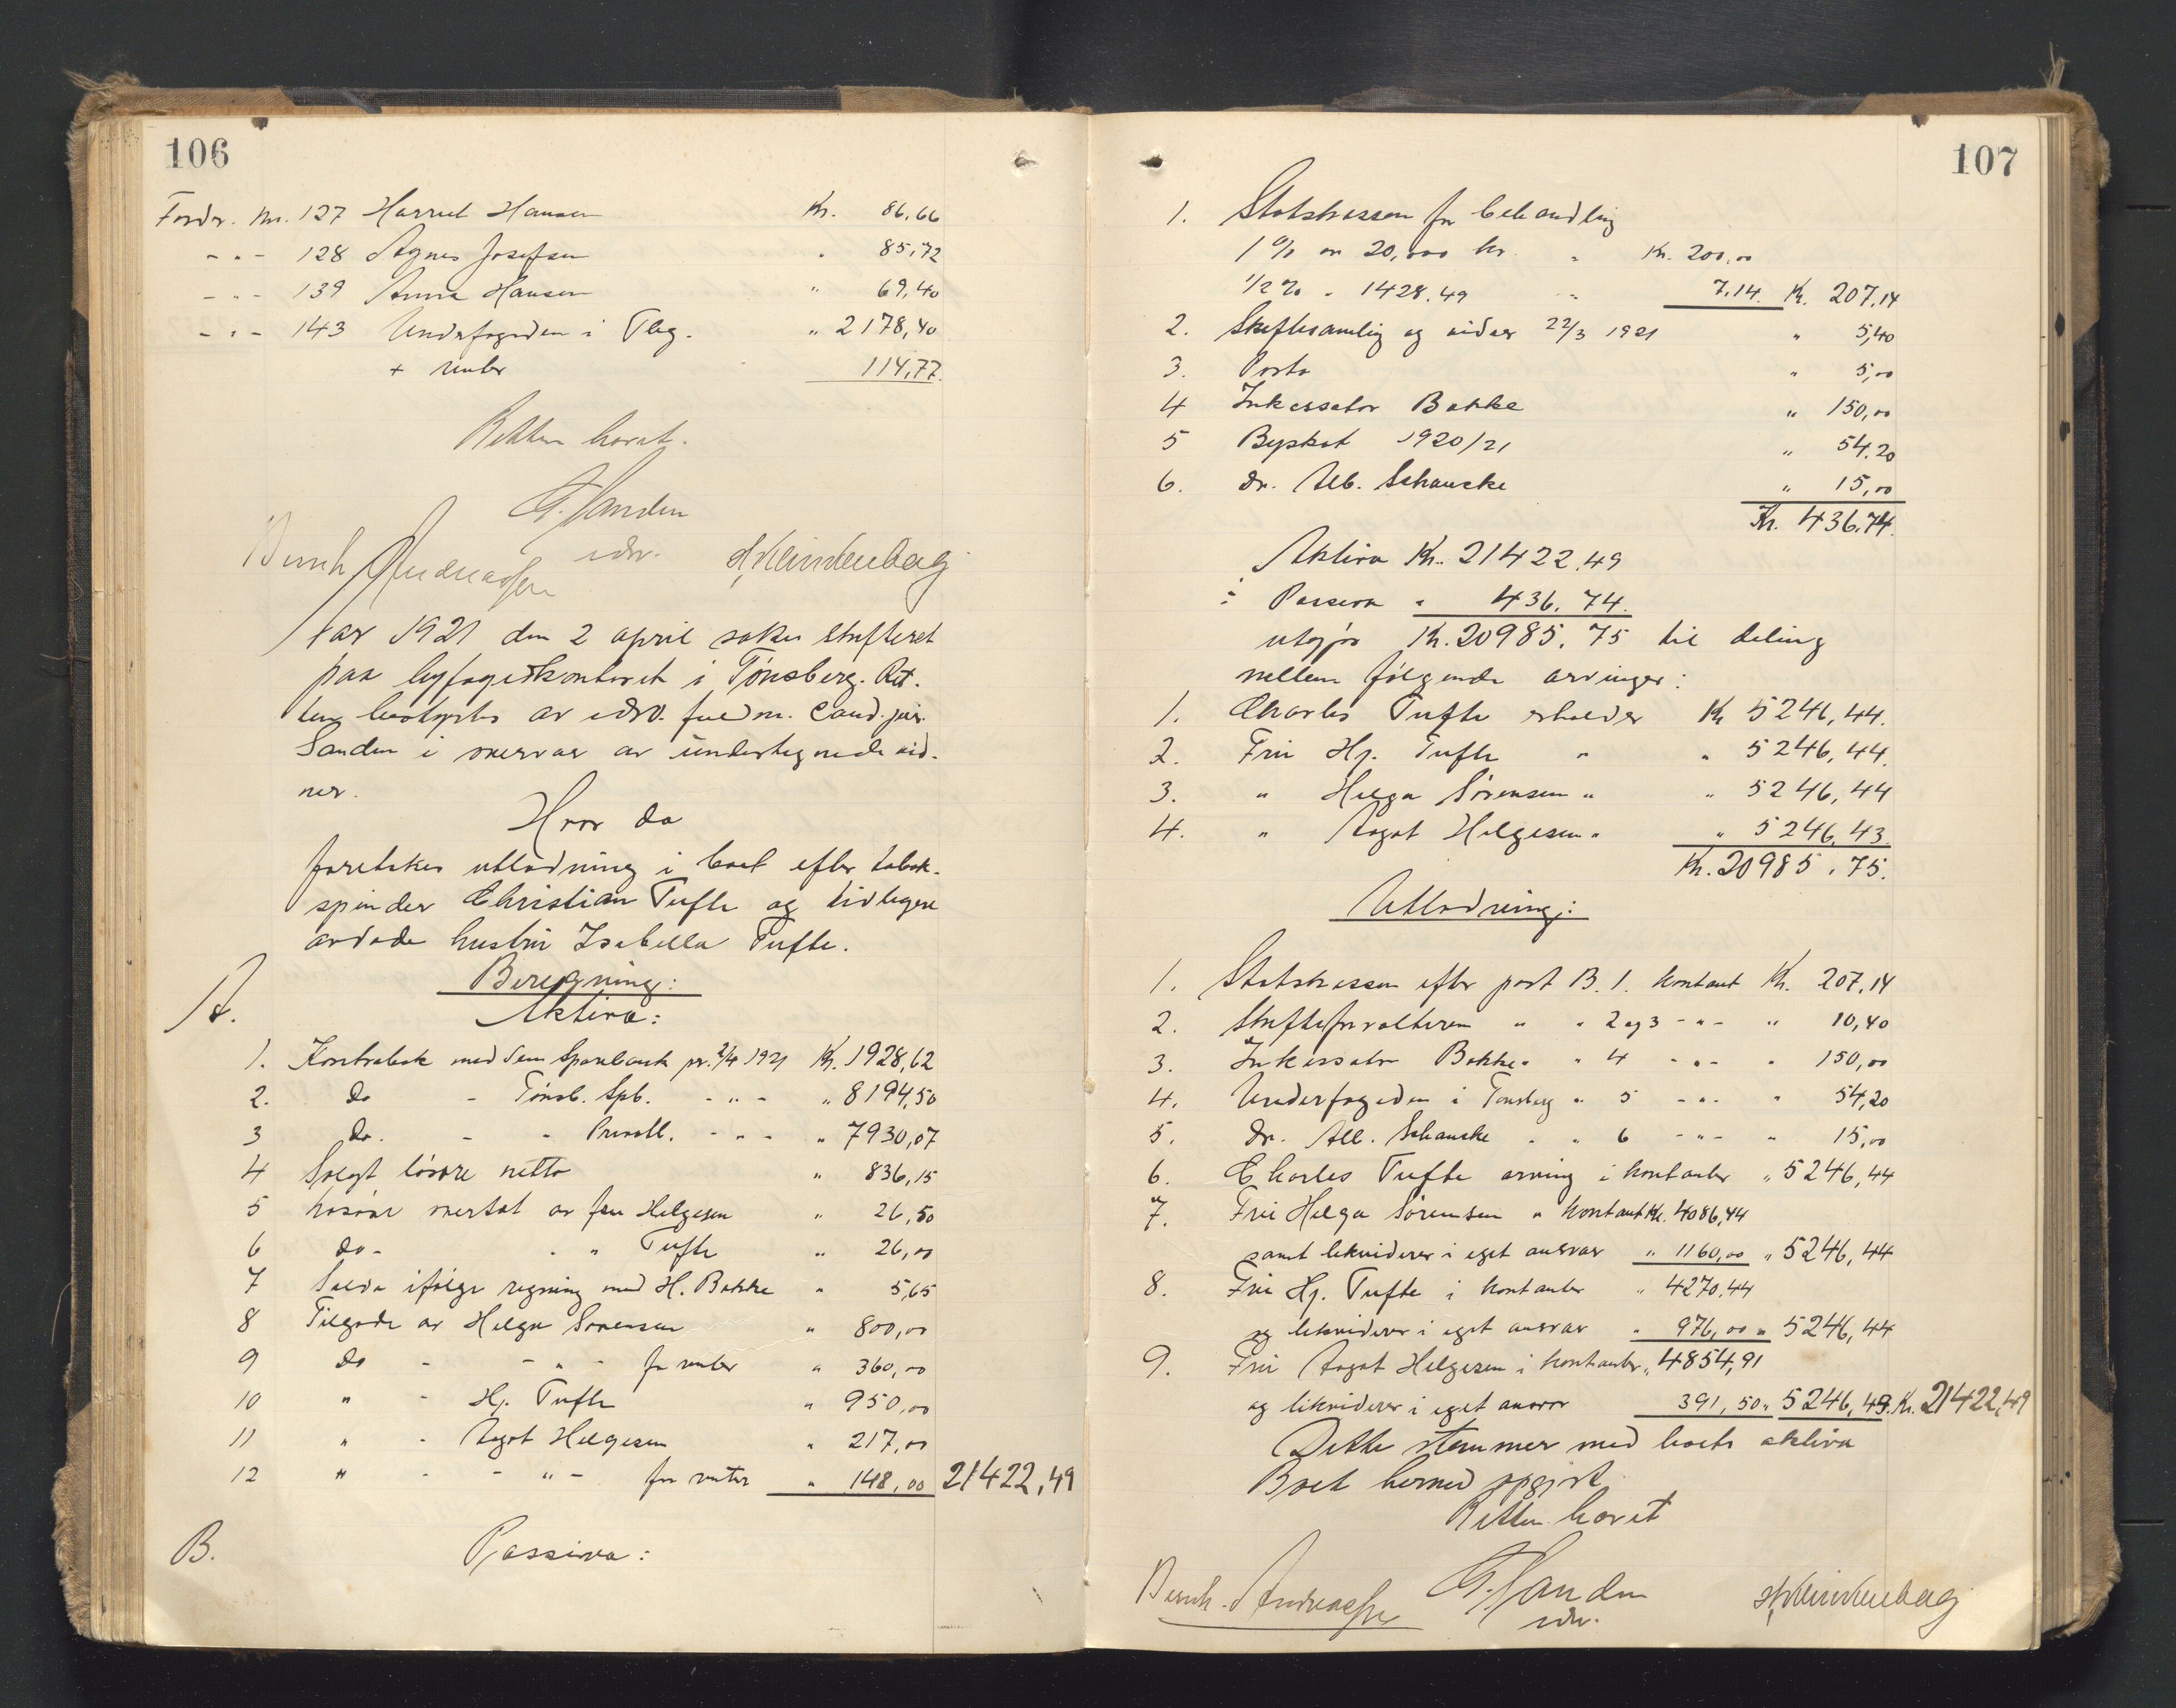 106
Fordr. Nr. 127 Harriet Hansen Kr. 86,66
- " - 128 Agnes Josefsen " 85,72
- " - 139 Anna Hansen " 69,40
- " - 143 Underfogden i Tbg. " 2178,40
+ renter 114,77
Retten hævet.
G. Sanden
edsv.
Bernh. Andreassen
Aar 1921 den 2 april sattes skifteret
paa byfogedkontoret i Tønsberg. Ret-
ten bestyrtes av edsv. fuldm. cand. jur.
Sanden i overvær av undertegnede vid-
ner.
Hvor da
foretokes utlodning i boet efter tobak-
spinder Christian Tufte og tidligere
avdøde hustru Isabella Tufte.
Beregning:
A. Aktiva:
1. Kontrabok med Sem Sparebank pr. 2/4 1921 Kr. 1928,62
2. do - Tønsb. Spb. - " - " 8194,50
3 do. - " Privatb. - " - " 7930,07
4 Solgt løsøre netto " 836,15
5 løsøre overtat av fru Helgesen " 26,50
6 do - " " Tufte " 26,00
7 Saldo ifølge regning med H. Bakke " 5,65
8 Tilgode av Helga Sørensen " 800,00
9 do - - " - for renter " 360,00
10 " - Hj. Tufte " 950,00
11 " - Aagot Helgesen " 217,00
12 " - - " - for renter " 148,00 21422,49
B. Passiva:
107
1. Statskassen for behandling
1 % av 20,000 kr. " Kr. 200,00
1/2 % " 1428.49 " 7,14. Kr. 207,14
2. Skiftesamling og vidner 22/3 1921 " 5,40
3. Porto " 5,00
4 Inkassator Bakke " 150,00
5 Byskat 1920/21 " 54.20
6. Dr. Alb. Schancke " 15,00
Kr. 436.74.
Aktiva Kr. 21422.49
÷ Passiva " 436.74.
utgjør Kr. 20985.75 til deling
mellem følgende arvinger:
1. Charles Tufte erholder Kr 5246,44.
2. Fru Hj. Tufte " " 5246,44.
3. " Helga Sørensen " " 5246,44
4. " Aagot Helgesen " " 5246,43.
Kr. 20985.75.
Utlodning:
1. Statskassen efter post B. 1. kontant Kr. 207,14
2. Skifteforvalteren " " 2 og 3 - " - " 10,40
3. Inkassator Bakke " " 4 - " - " 150,00
4. Underfogeden i Tønsberg " 5 - " - " 54,20
5. Dr. Alb. Schancke " " 6 - " - " 15,00
6. Charles Tufte arving i kontanter " 5246,44
7. Fru Helga Sørensen " kontant Kr. 4086,44
samt likviderer i eget ansvar " 1160,00 " 5246,44
8. Fru Hj. Tufte i kontanter " 4270.44
og likviderer i eget ansvar " 976,00 " 5246,44
9. Fru Aagot Helgesen i kontanter " 4854,91
og likviderer i eget ansvar 391,50 " 5246,43. Kr. 21422,49
Dette stemmer med boets aktiva
Boet hermed opgjort
Retten hævet
G. Sanden
edsv.
Bernh. Andreassen